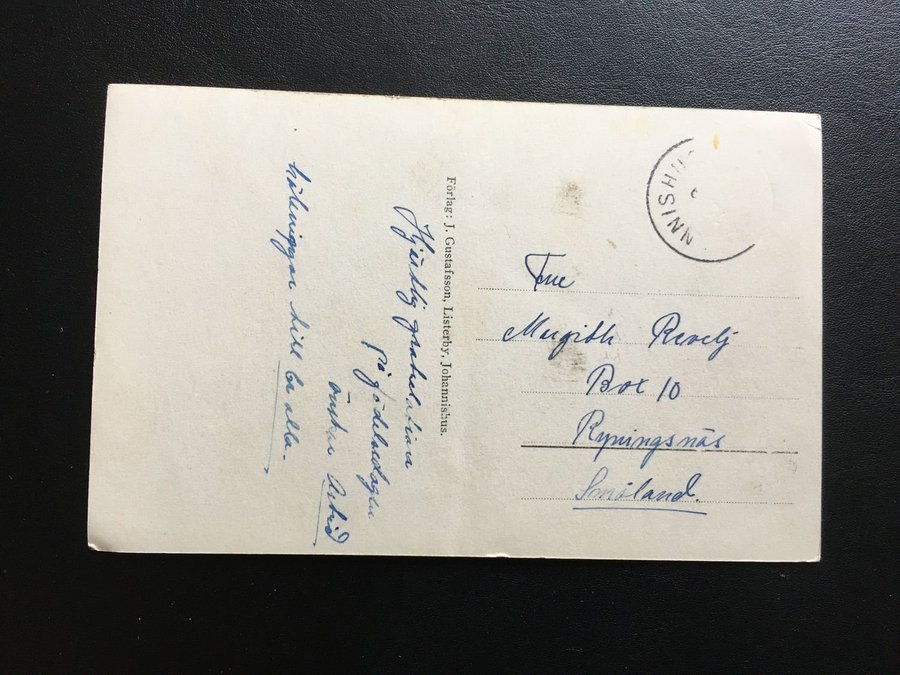 Hjärtlig gratulation
på födelsedagen
önskar Arvid
hälsningar till Er alla.
Förlag: J. Gustafsson, Listerby, Johannishus.
NNISHU
Fru
Margith Revelj
Box 10
Ryningsnäs
Småland.